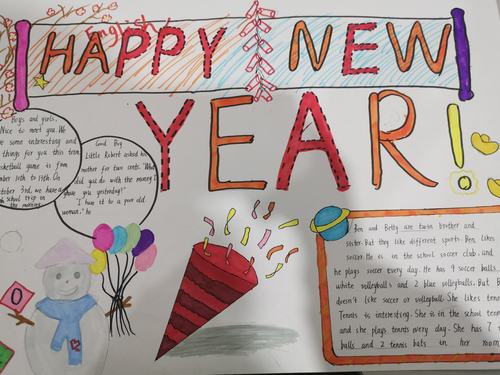 English
HAPPY NEW
YEAR!
Boys and girls,
Nice to meet you. We
some interesting and
things for you this term
basketball game is from
10th to 15th. On
3rd, we have a
school trip in
the morning
Good Boy
Little Robert asked his
mother for two cents. "What
did you do with the money I
gave you yesterday?"
"I have it to a poor old
woman," he
Ben and Betty are twin brother and
sister. But they like different sports. Ben likes
soccer. He is in the school soccer club. and
he plays soccer every day. He has 9 soccer balls.
white volleyballs and 2 blue volleyballs. But B
doesn't like soccer or volleyball. She likes tenn
Tennis is interesting. She is in the school tenn
and she plays tennis every day. She has 7
balls and 2 tennis bats in her room
0